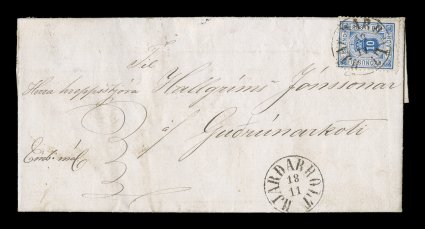 Til
Herra hreppstjóra Hallgríms Jónssonar
á/ Guðrúnarkoti
Emb. mál
10
HJARDARHOLT
18
11